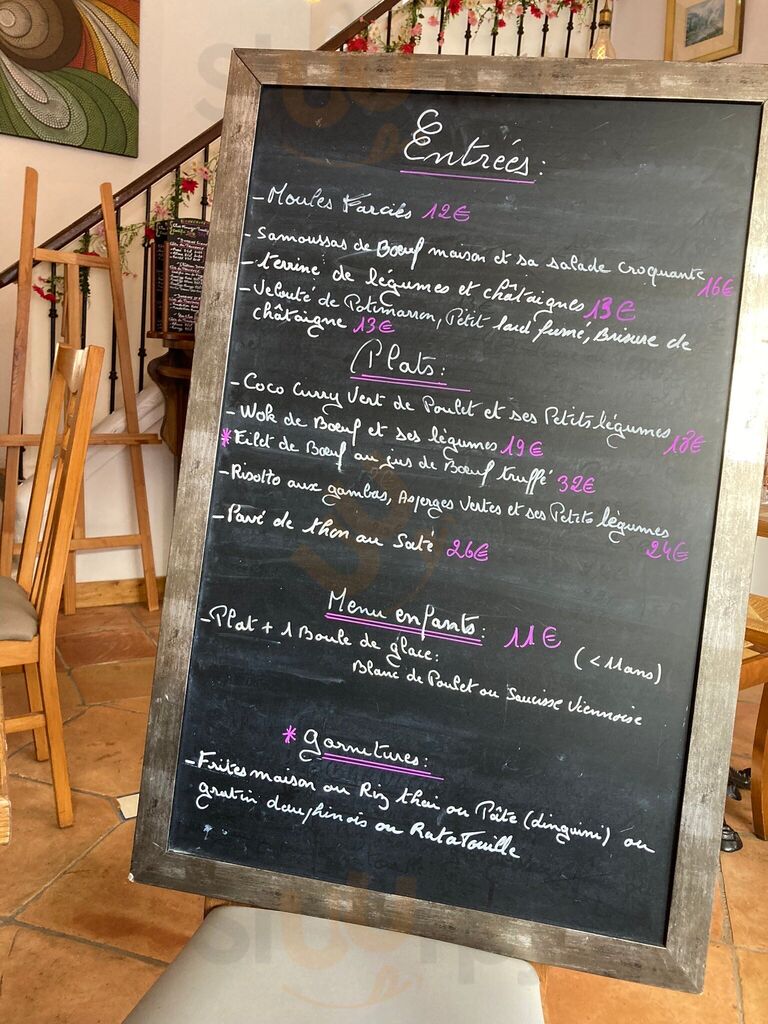 Entrées:
- Moules Farcies 12€
- Samoussas de Bœuf maison et sa salade croquante 16€
- terrine de légumes et châtaignes 13€
- Velouté de Potimarron, Petit lard fumé, Brisure de
châtaigne 13€
Plats:
- Coco Curry Vert de Poulet et ses Petits légumes 18€
- Wok de Bœuf et ses légumes 19€
* Filet de Bœuf au jus de Bœuf truffé 32€
- Risotto aux gambas, Asperges Vertes et ses Petits légumes
24€
- Pavé de thon au Saté 26€
Menu enfants: 11€
(<11ans)
- Plat + 1 Boule de glace:
Blanc de Poulet ou Saucisse Viennoise
* Garnitures:
- Frites maison ou Riz thai ou Pâte (linguini) ou
gratin dauphinois ou Ratatouille